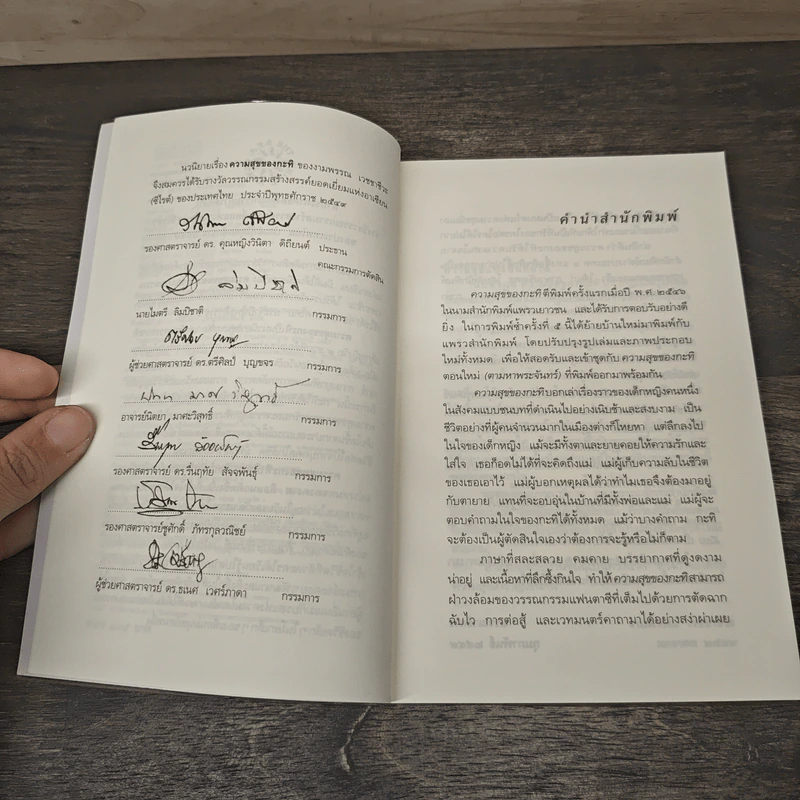 นวนิยายเรื่อง ความสุขของกะทิ ของงามพรรณ เวชชาชีวะ
จึงสมควรได้รับรางวัลวรรณกรรมสร้างสรรค์ยอดเยี่ยมแห่งอาเซียน
(ซีไรต์) ของประเทศไทย ประจำปีพุทธศักราช ๒๕๔๙
รองศาสตราจารย์ ดร. คุณหญิงวินิตา ดิถียนต์ ประธาน
คณะกรรมการตัดสิน
นายไมตรี ลิมปิชาติ กรรมการ
ผู้ช่วยศาสตราจารย์ ดร.ตรีศิลป์ บุญขจร กรรมการ
อาจารย์นิตยา มาศะวิสุทธิ์ กรรมการ
รองศาสตราจารย์ ดร.รื่นฤทัย สัจจพันธุ์ กรรมการ
รองศาสตราจารย์ชูศักดิ์ ภัทรกุลวณิชย์ กรรมการ
ผู้ช่วยศาสตราจารย์ ดร.ธเนศ เวศร์ภาดา กรรมการ
คำนำสำนักพิมพ์
ความสุขของกะทิ ตีพิมพ์ครั้งแรกเมื่อปี พ.ศ. ๒๕๔๖
ในนามสำนักพิมพ์แพรวเยาวชน และได้รับการตอบรับอย่างดี
ยิ่ง ในการพิมพ์ซ้ำครั้งที่ ๕ นี้ได้ย้ายบ้านใหม่มาพิมพ์กับ
แพรวสำนักพิมพ์ โดยปรับปรุงรูปเล่มและภาพประกอบ
ใหม่ทั้งหมด เพื่อให้สอดรับและเข้าชุดกับ ความสุขของกะทิ
ตอนใหม่ (ตามหาพระจันทร์) ที่พิมพ์ออกมาพร้อมกัน
ความสุขของกะทิบอกเล่าเรื่องราวของเด็กหญิงคนหนึ่ง
ในสังคมแบบชนบทที่ดำเนินไปอย่างเนิบช้าและสงบงาม เป็น
ชีวิตอย่างที่ผู้คนจำนวนมากในเมืองต่างก็โหยหา แต่ลึกลงไป
ในใจของเด็กหญิง แม้จะมีทั้งตาและยายคอยให้ความรักและ
ใส่ใจ เธอก็อดไม่ได้ที่จะคิดถึงแม่ แม่ผู้เก็บความลับในชีวิต
ของเธอเอาไว้ แม่ผู้บอกเหตุผลได้ว่าทำไมเธอจึงต้องมาอยู่
กับตายาย แทนที่จะอบอุ่นในบ้านที่มีทั้งพ่อและแม่ แม่ผู้จะ
ตอบคำถามในใจของกะทิได้ทั้งหมด แม้ว่าบางคำถาม กะทิ
จะต้องเป็นผู้ตัดสินใจเองว่าต้องการจะรู้หรือไม่ก็ตาม
ภาษาที่สละสลวย คมคาย บรรยากาศที่ดูงดงาม
น่าอยู่ และเนื้อหาที่ลึกซึ้งกินใจ ทำให้ ความสุขของกะทิสามารถ
ฝ่าวงล้อมของวรรณกรรมแฟนตาซีที่เต็มไปด้วยการตัดฉาก
ฉับไว การต่อสู้ และเวทมนตร์คาถามาได้อย่างสง่าผ่าเผย